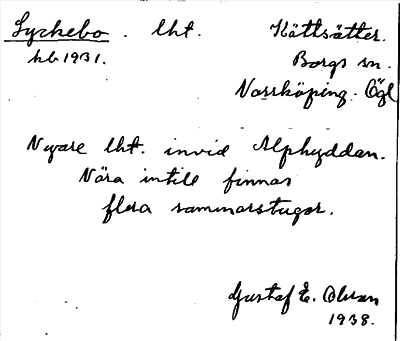 Lyckebo. lht. Kättsätter.
hb 1931. Borgs sn.
Norrköping. Ögl
Nyare lht. invid Alphyddan.
Nära intill finnas
flera sommarstugor.
Gustaf E. Olsson
1938.